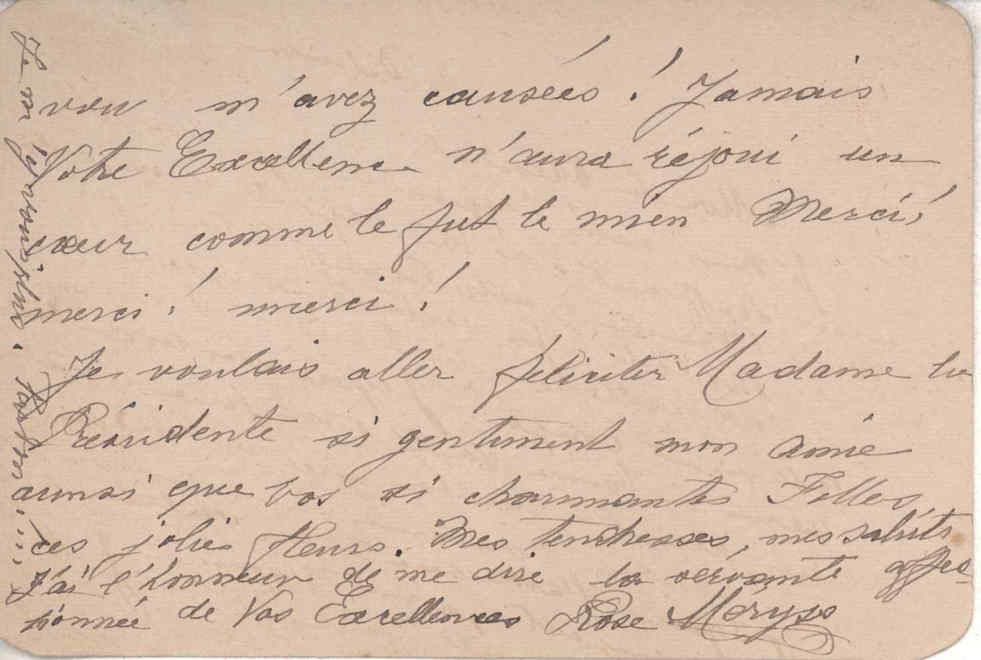 vous m'avez causées! Jamais
Votre Excellence n'aura réjoui un
cœur comme le fut le mien Merci!
merci! merci!
Je voulais aller féliciter Madame la
Présidente si gentiment mon amie
ainsi que vos si charmantes Filles
ces jolies fleurs. Mes tendresses, mes
J'ai l'honneur de me dire la servante affec
tionnée de Vos Excellences Rose Meryss
Je n'y